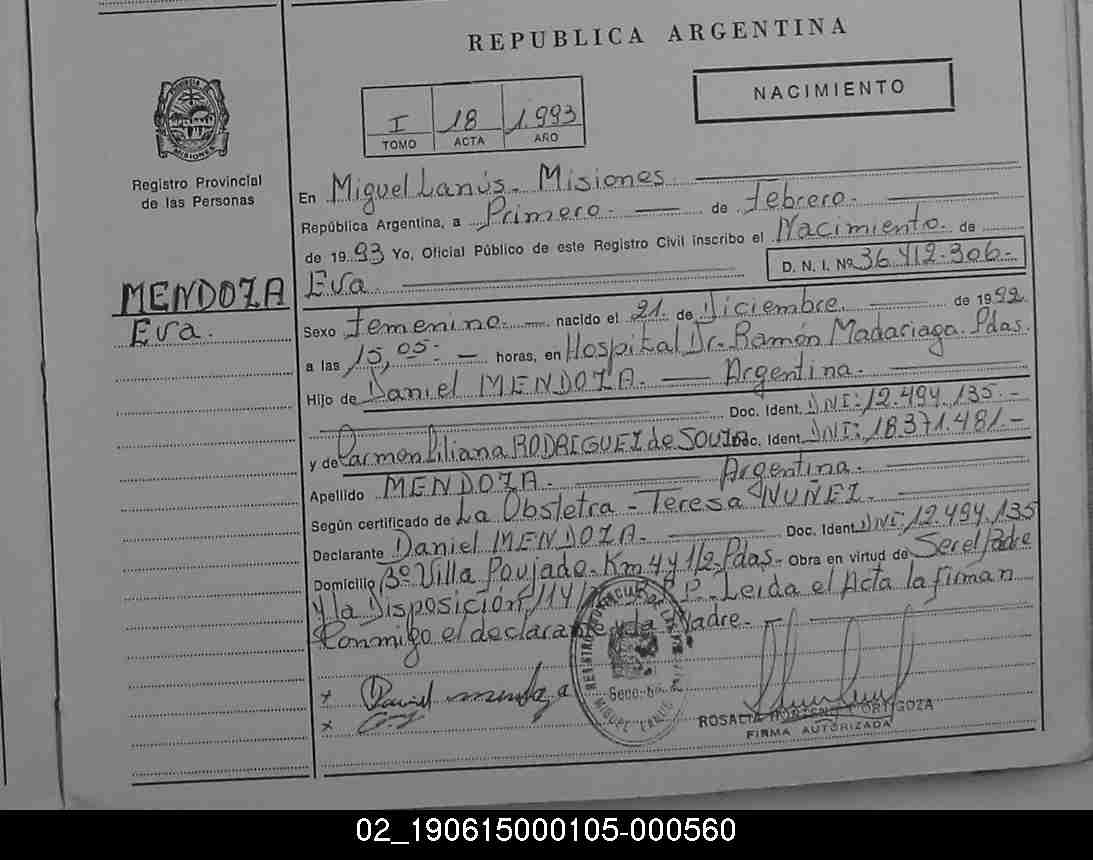 REPUBLICA ARGENTINA
NACIMIENTO
I 18 1.993
TOMO ACTA AÑO
PROVINCIA DE MISIONES
Registro Provincial
de las Personas
MENDOZA
Eva.
En Miguel Lanús. Misiones.
República Argentina, a Primero. — de Febrero.
de 1993 Yo, Oficial Público de este Registro Civil inscribo el Nacimiento. de
Eva D. N. I. Nº 36.412.306.-
Sexo Femenino. — nacido el 21. de Diciembre. de 1992
a las 15,05: — horas, en Hospital Dr. Ramón Madariaga. Pdas.
Hijo de Daniel MENDOZA. — Argentina.
Doc. Ident. DNI: 12.494.135.-
y de Carmen Liliana RODRIGUEZ de SOUZA Doc. Ident. DNI: 18.371.481.-
Argentina.
Apellido MENDOZA.
Según certificado de La Obstetra - Teresa NUÑEZ.
Declarante Daniel MENDOZA. Doc. Ident. DNI: 12.494.135
Domicilio Bº Villa Poujade. Km 4 y 1/2. Pdas. Obra en virtud de Ser el Padre
y la Disposición 114/ P. Leida el Acta la firman
Conmigo el declarante y la Madre.
x Daniel mendoza
x
REGISTRO PROVINCIAL DE LAS PERSONAS
MIGUEL LANUS
ROSALIA ORTIGOZA
FIRMA AUTORIZADA
02_190615000105-000560